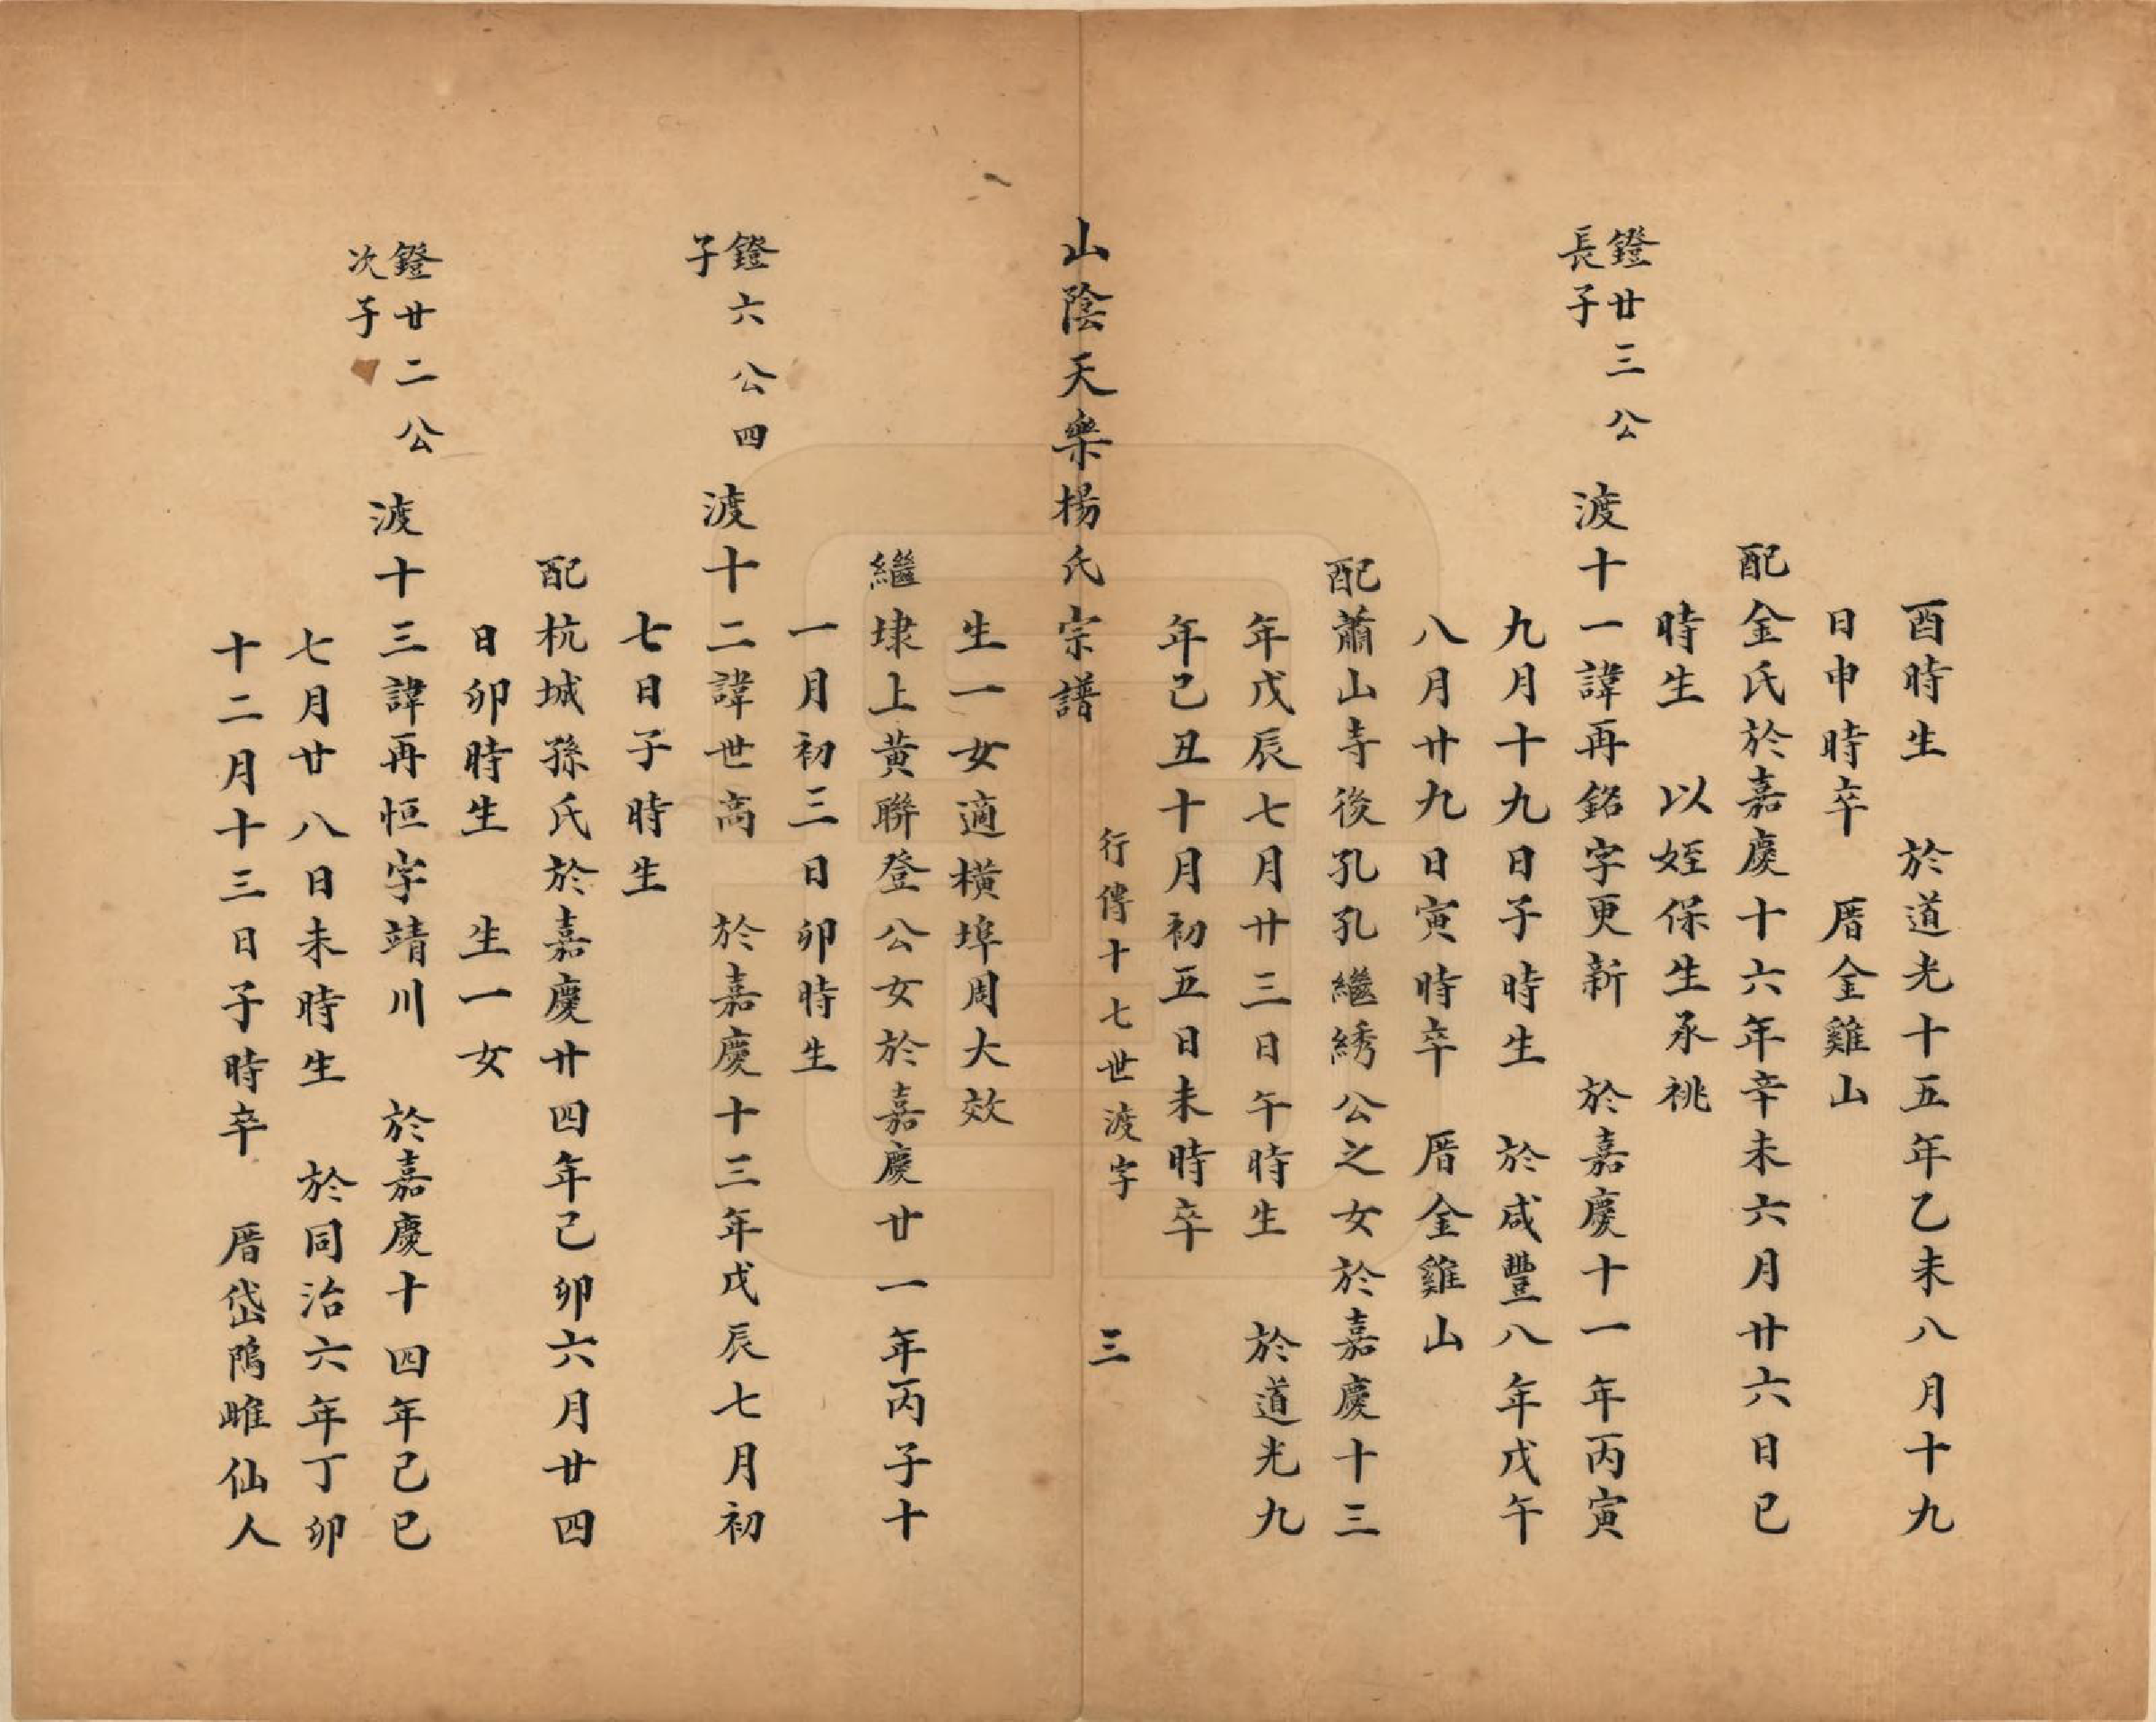 酉時生　於道光十五年乙未八月十九
日申時卒　厝金雞山
配金氏於嘉慶十六年辛未六月廿六日巳
時生　以姪保生承祧
鐙廿三公
長子
渡十一諱再銘字更新　於嘉慶十一年丙寅
九月十九日子時生　於咸豐八年戊午
八月廿九日寅時卒　厝金雞山
配蕭山寺後孔孔繼綉公之女於嘉慶十三
年戊辰七月廿三日午時生　於道光九
年己丑十月初五日未時卒
山陰天樂楊氏宗譜　行傳十七世渡字　三
生一女適橫埠周大效
繼埭上黃聯登公女於嘉慶廿一年丙子十
一月初三日卯時生
鐙六公四
子
渡十二諱世高　於嘉慶十三年戊辰七月初
七日子時生
配杭城孫氏於嘉慶廿四年己卯六月廿四
日卯時生　生一女
鐙廿二公
次子
渡十三諱再恒字靖川　於嘉慶十四年己巳
七月廿八日未時生　於同治六年丁卯
十二月十三日子時卒　厝岱隖雎仙人